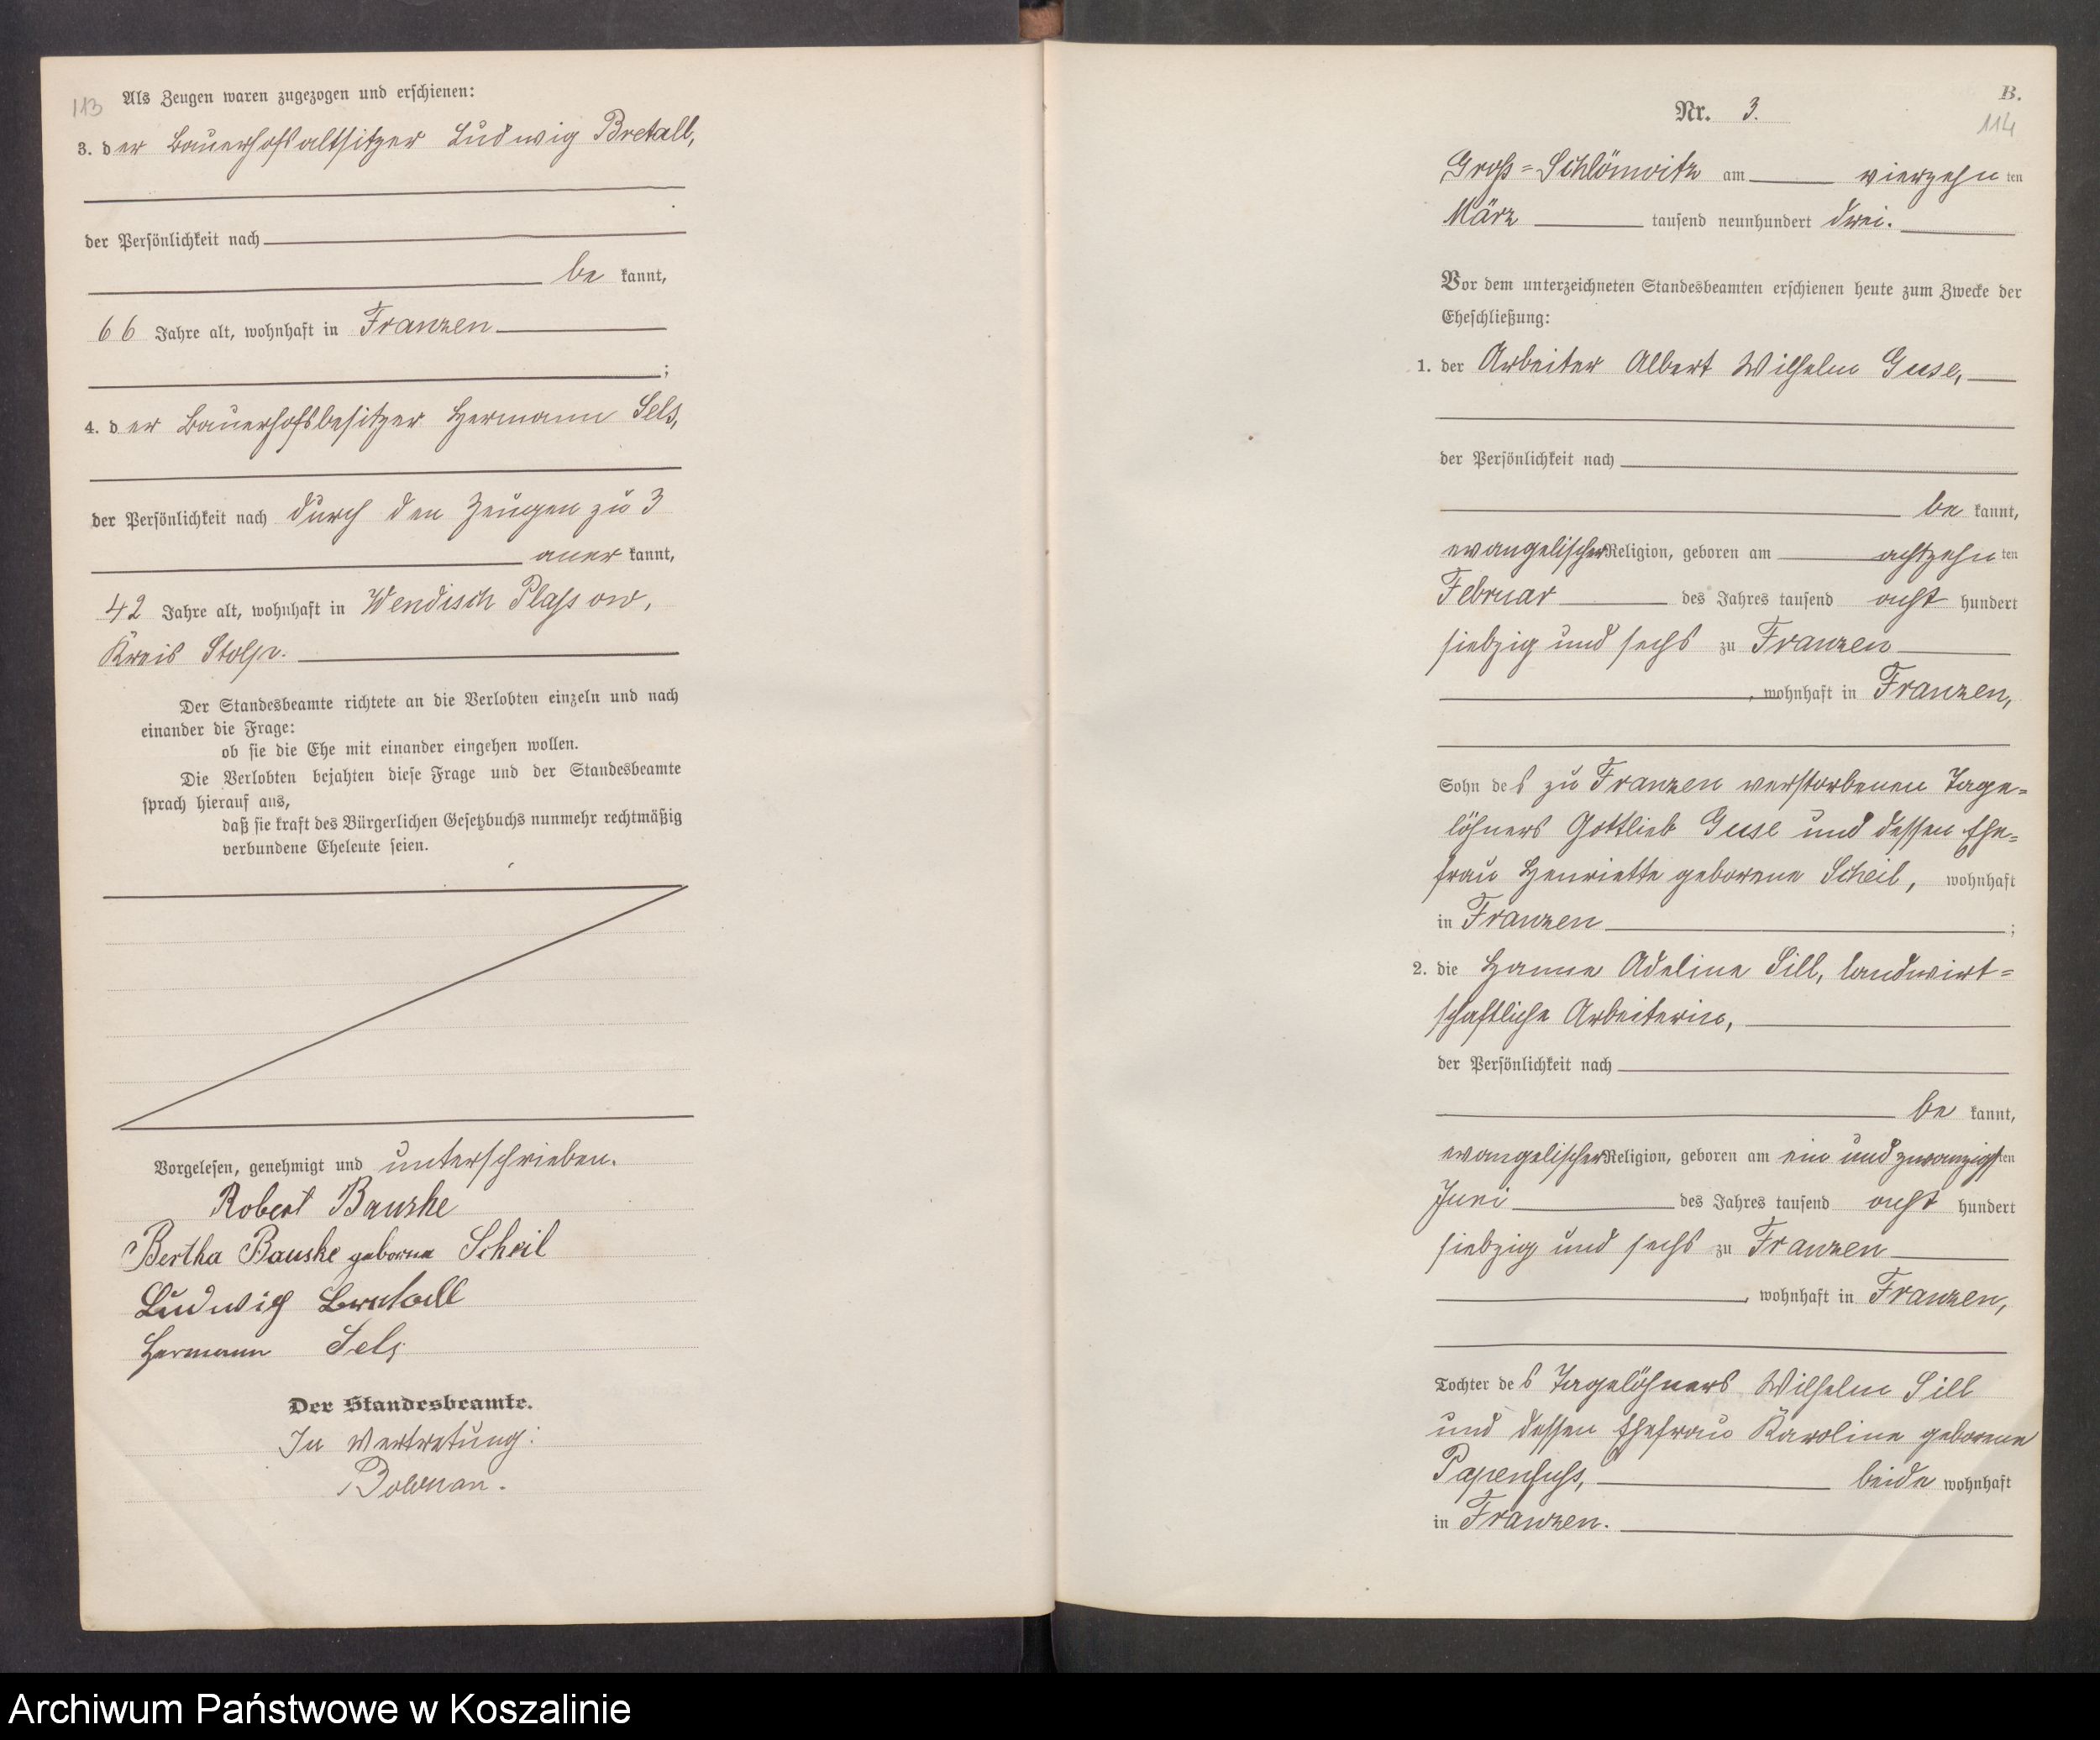 113
Als Zeugen waren zugezogen und erschienen:
3. der Bauerhofsaltsitzer Ludwig Bretall,
der Persönlichkeit nach
be kannt,
66 Jahre alt, wohnhaft in Franzen
;
4. der Bauerhofsbesitzer Hermann Sels,
der Persönlichkeit nach durch den Zeugen zu 3
aner kannt,
42 Jahre alt, wohnhaft in Wendisch Plassow,
Kreis Stolp.
Der Standesbeamte richtete an die Verlobten einzeln und nach
einander die Frage:
ob sie die Ehe mit einander eingehen wollen.
Die Verlobten bejahten diese Frage und der Standesbeamte
sprach hierauf aus,
daß sie kraft des Bürgerlichen Gesetzbuchs nunmehr rechtmäßig
verbundene Eheleute seien.
Vorgelesen, genehmigt und unterschrieben.
Robert Bauske
Bertha Bauske geborne Scheil
Ludwig Bretall
Hermann Sels
Der Standesbeamte.
In Vertretung:
B.
Nr. 3.
114
Groß=Schlönwitz am vierzehn ten
März tausend neunhundert drei.
Vor dem unterzeichneten Standesbeamten erschienen heute zum Zwecke der
Eheschließung:
1. der Arbeiter Albert Wilhelm Guse,
der Persönlichkeit nach
be kannt,
evangelischer Religion, geboren am achtzehn ten
Februar des Jahres tausend acht hundert
siebzig und sechs zu Franzen
, wohnhaft in Franzen,
Sohn des zu Franzen verstorbenen Tage=
löhners Gottlieb Guse und dessen Ehe=
frau Henriette geborene Scheil, wohnhaft
in Franzen ;
2. die Hanne Adeline Sill, landwirt=
schaftliche Arbeiterin,
der Persönlichkeit nach
be kannt,
evangelischer Religion, geboren am ein und zwanzigsten
Juni des Jahres tausend acht hundert
siebzig und sechs zu Franzen
, wohnhaft in Franzen,
Tochter des Tagelöhners Wilhelm Sill
und dessen Ehefrau Karoline geborene
Papenfuss, beide wohnhaft
in Franzen.
Archiwum Państwowe w Koszalinie